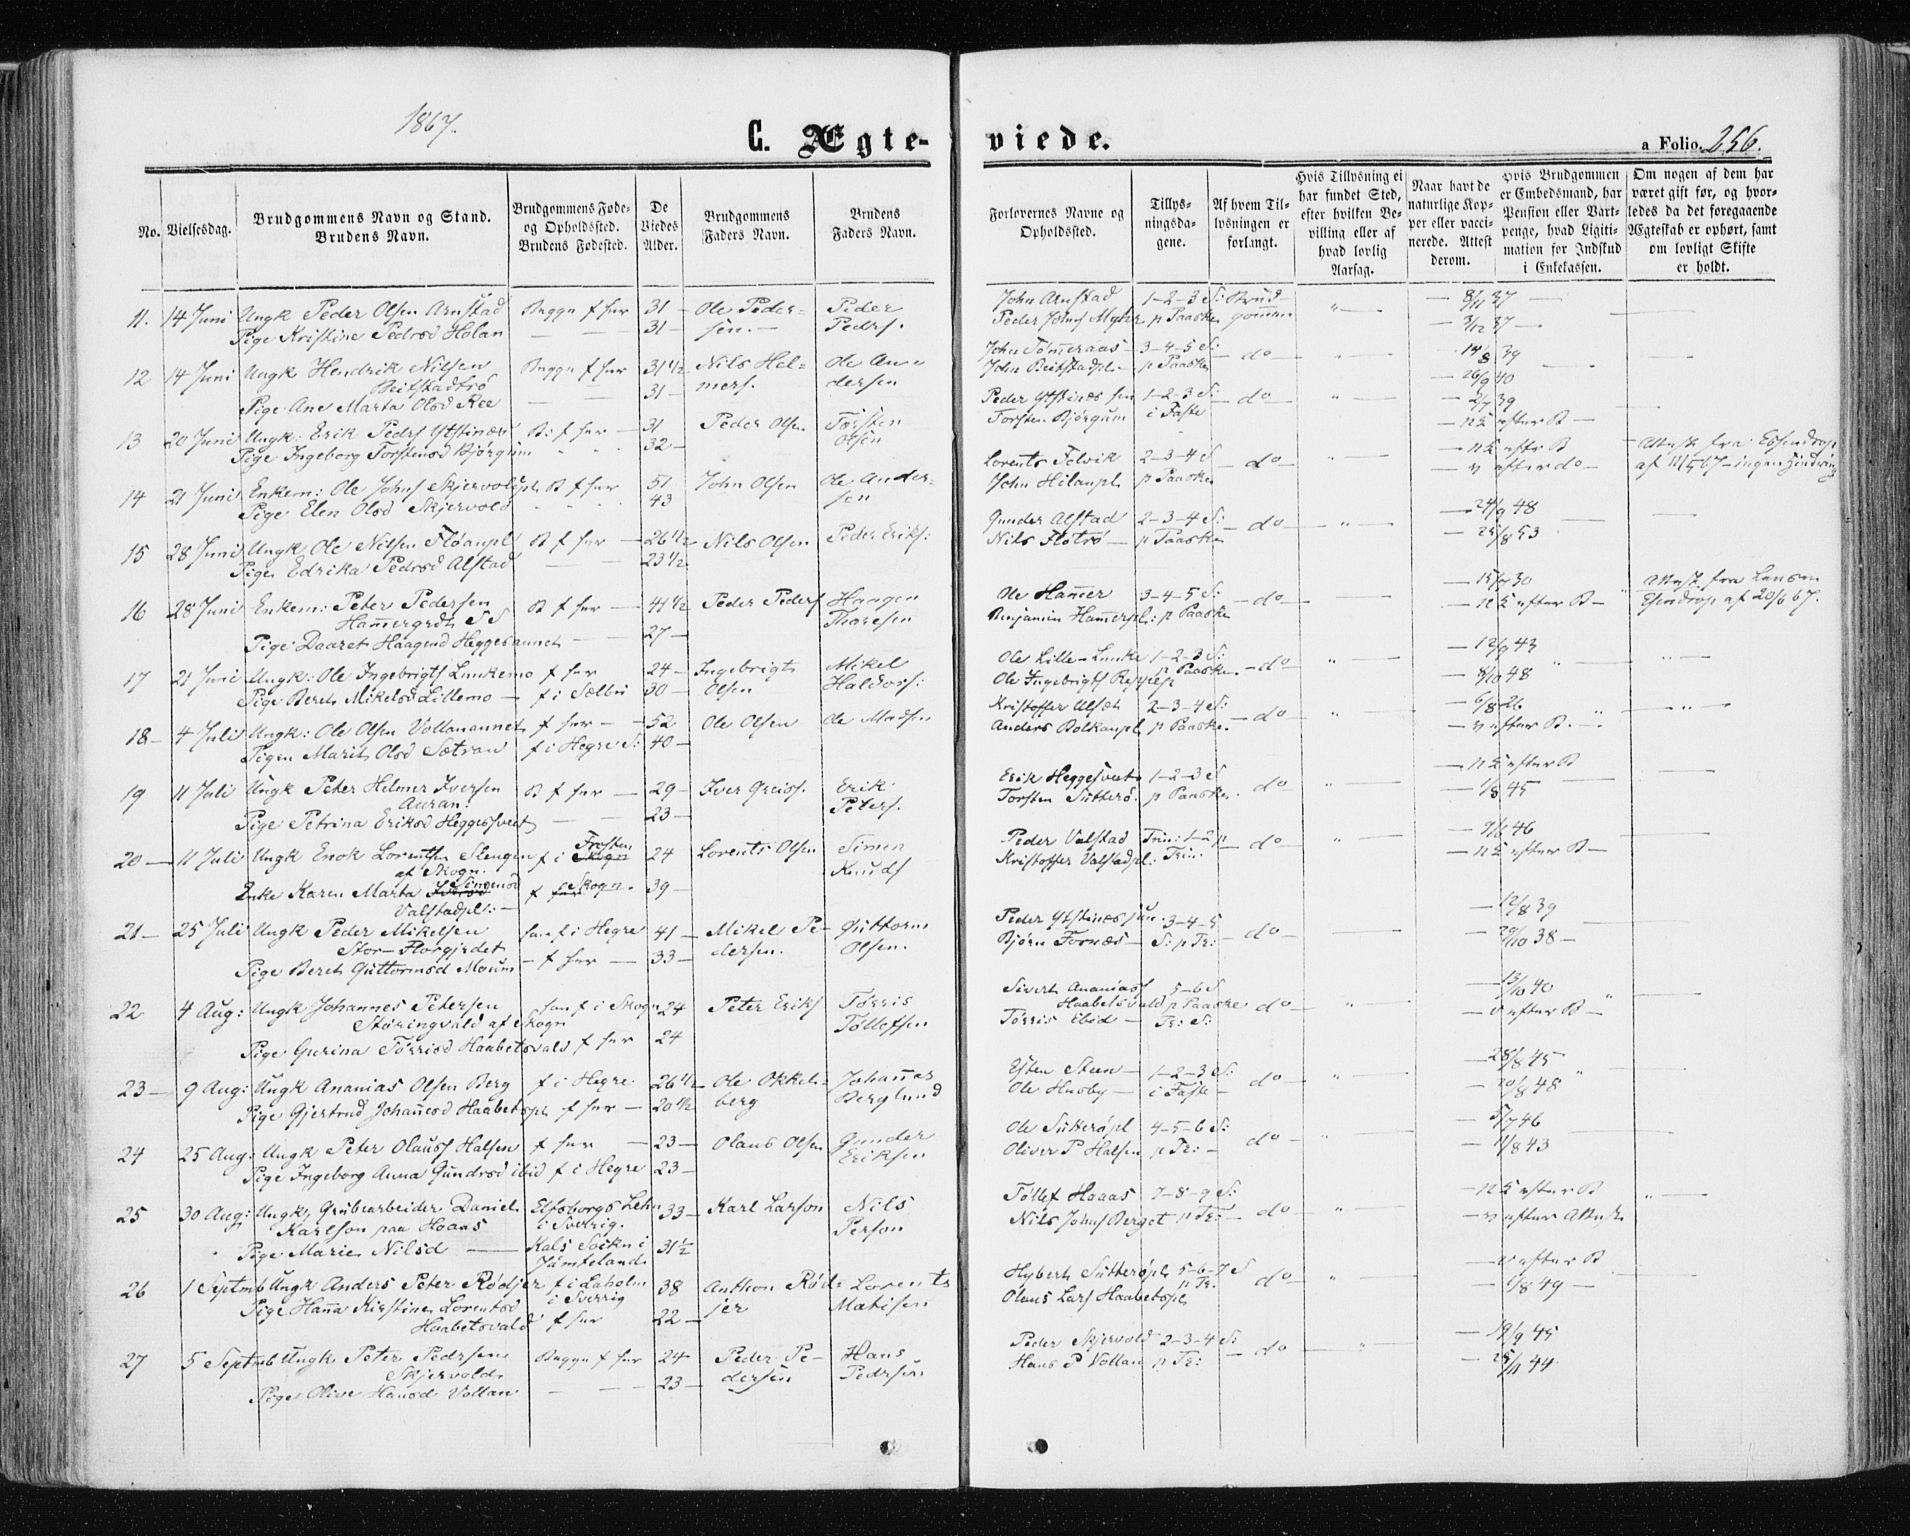 1867.
C. Ægte-
viede.
a Folio. 256.
No.
Vielsesdag.
Brudgommens Navn og Stand.
Brudens Navn.
Brudgommens Føde-
og Opholdssted.
Brudens Fødested.
De
Viedes
Alder.
Brudgommens
Faders Navn.
Brudens
Faders Navn.
Forlovernes Navne og
Opholdssted.
Tillys-
ningsda-
gene.
Af hvem Til-
lysningen er
forlangt.
Hvis Tillysning ei
har fundet Sted,
efter hvilken Be-
villing eller af
hvad lovlig
Aarsag.
Naar havt de
naturlige Kop-
per eller vacci-
nerede. Attest
derom.
Hvis Brudgommen
er Embedsmand, har
Pension eller Vart-
penge, hvad Ligiti-
mation for Indskud
i Enkekassen.
Om nogen af dem har
været gift før, og hvor-
ledes da det foregaaende
Ægteskab er ophørt, samt
om lovligt Skifte
er holdt.
11. 14 Juni Ungk Peder Olsen Arnstad Begge f her 31 – Ole Peder- Peder John Arnstad 1-2-3 S: Brud- " 8/11 37
Pige Kristine Pedrsd Holan 31 – sen. Peders. Peder Johns Myhr p Paaske gommen 3/12 37
12 14 Juni Ungk Hendrik Nilsen Begge f her 31 1/2 Nils Hel- Ole An- John Tømeraas 3-4-5 S: do " 14/8 39
Beitstadtrø 31 – mers. dersen John Beitstadpl p Paaske 26/9 40
Pige Ane Marta Olsd Ree
13 20 Juni Ungk: Erik Peders Ytstines B: f her 31 Peder Olsen Torsten Peder Ytstines sen 1-2-3 S: do " 2/7 39
Pige Ingeborg Torstensd Bjørgum 32 – Olsen Torsten Bjørgum i Faste n S efter B
14 21 Juni Enkem: Ole Johns Skjervolspl B f her 51 John Olsen Ole Ander- Lorents Felvik 2-3-4 S do " n S efter B Attest fra Essendrop
Pige Elen Olsd Skjervold 43 sen John Hilanpl p Paaske v efter do af 11/5 67 – ingen Hindring
15 28 Juni Ungk Ole Nilsen Floanpl B f her 26 1/2 Nils Olsen Peder Eriks: Gunder Alstad 2-3-4 S: do " 24/9 48
Pige Edrika Pedrsd Alstad 23 1/2 Nils Flotrø p Paaske 25/8 53
16 28 Juni Enkem: Peter Pedersen B f her 41 1/2 Peder Peders Haagen Ole Hamer 3-4-5 S: do 15/7 30 Attest fra Lensm
Hamergrdt SS 27 – Thoresen Benjamin Hamerpl: p Paaske n S efter B – Esendrop af 20/6 67.
Pige Daaret Haagensd Heggesannet
17 21 Juni Ungk: Ole Ingebrigts Lunkemo f her 24 – Ingebrigt Mikel Ole Lille-Lunke 1-2-3 S: do " 12/9 43
Pige Beret Mikelsd Lillemo f i Selbu 30 – Olsen Haldors: Ole Ingebrigts Reppespl p Paaske 8/10 48
18 – 4 Juli Ungk: Ole Olsen Vollanannet f her 52 Ole Olsen Ole Madsen Kristoffer Ulset 2-3-4 S: do " 6/8 26
Pigen Marit Olsd Sætran f i Hegre S: 40 – Anders Bolkanpl p Paaske. v efter B.
19 11 Juli Ungk Peter Helmer Iversen B f her 29 – Iver Greiss. Erik Erik Heggesvet 1-2-3 S do " n S efter B
Auran. 23 – Peters. Torsten Sutterø. p Paaske. 1/8 45
Pige Petrina Eriksd Heggessvedt
20 – 11 Juli Ungk Enok Lorentsen Stengen f i Frosten 24 Lorents Olsen Simen Peder Valstad Trin: 1-2 p do " 9/6 46
af Skogn. Knuds Kristoffer Valstadpl: Trin: n S efter B
Enke Karen Marta Simensd f Skogn. 39 –
Valstadpl: –
21 – 25 Juli Ungk Peder Mikelsen han f i Hegre 41 – Mikel Pe- Guttorm Peder Ytstines jun. 3-4-5 do " 12/8 39
Stor-Florgjrdet dersen. Olsen. Bjørn Fornes – S: p Tr: 29/10 38 –
Pige Beret Guttormsd Moum – f her – 33 –
22 4 Aug: Ungk Johannes Petersen han f i Skogn 24 Peter Eriks Torris Sivert Ananias 5-6 S do " 13/10 40
Støringvald af Skogn Tollefsen Haabetsvald p Paaske v efter B
Pige Gurina Torrisd Haabetsvald f her 24 Torris Ibid – Tr: S:
23 – 9 Aug: Ungk Ananias Olsen Berg f i Hegre 26 1/2 Ole Okkel- Johannes Esten Steen 1-2-3 S: do " 28/8 45
Pige Gjertrud Johanesd Haabetspl f her – 20 1/2 berg Berglund Ole Husby – i Faste 20/8 48
24 25 Aug: Ungk Peter Olauss Halsen f her 23 – Olaus Olsen Gunder Ole Sutterøpl 4-5-6 S: do " 5/7 46
Pige Ingeborg Anna Gundrsd ibid f i Hegre 23 – Eriksen Oliver P Halsen p Tr: 11/8 43
25 30 Aug: Ungk, Grubearbeider Daniel Elfsborgs Lehn 33 – Karl Larson Nils Tollef Haaas 7-8-9 S: do " n S efter B
Karlson paa Haaas i Sverig. Person Nils Johns Berget p Tr: v efter Attest
Pige Marie Nilsd Kals Sokn i 31 1/2
Jämteland
26 1 Septmb Ungk Anders Peter Rödjer f i Laholm 38 Anthon Röd- Lorents Hybert Sutterøpl 5-6-7 S do v efter B
Pige Hana Kirstine Lorentsd i Sverrig jer Matisen Olaus Lars Haabetspl p Tr: 1/8 49 –
Haabetsvald f her 22 –
27 5 Septmb Ungk Peter Pedersen Begge f her 24 Peder Pe- Hans Peder Skjervold 2-3-4 S: do " 19/9 45
Skjervold 23 – dersen Pedrsen Hans P Vollan p Tr: 25/11 44
Pige Olive Hansd Vollan